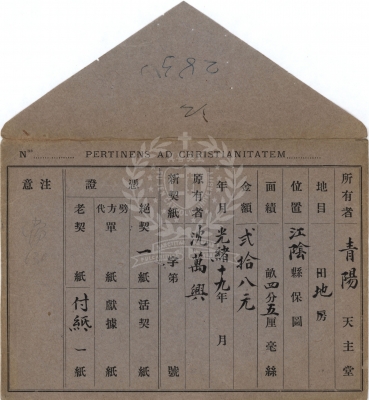 2830
N°
PERTINENS AD CHRISTIANITATEM
所有者 青陽 天主堂
地目 田地房
位置 江陰 縣保圖
面積 畝四分五厘毫絲
金額 弍拾八元
年月 光緒十九年 月
原有者 沈萬興
新契紙 字第 號
憑證
絕契 一紙 活契 紙
代方劈單 紙 獻據 紙
老契 紙 付紙 一紙
注意